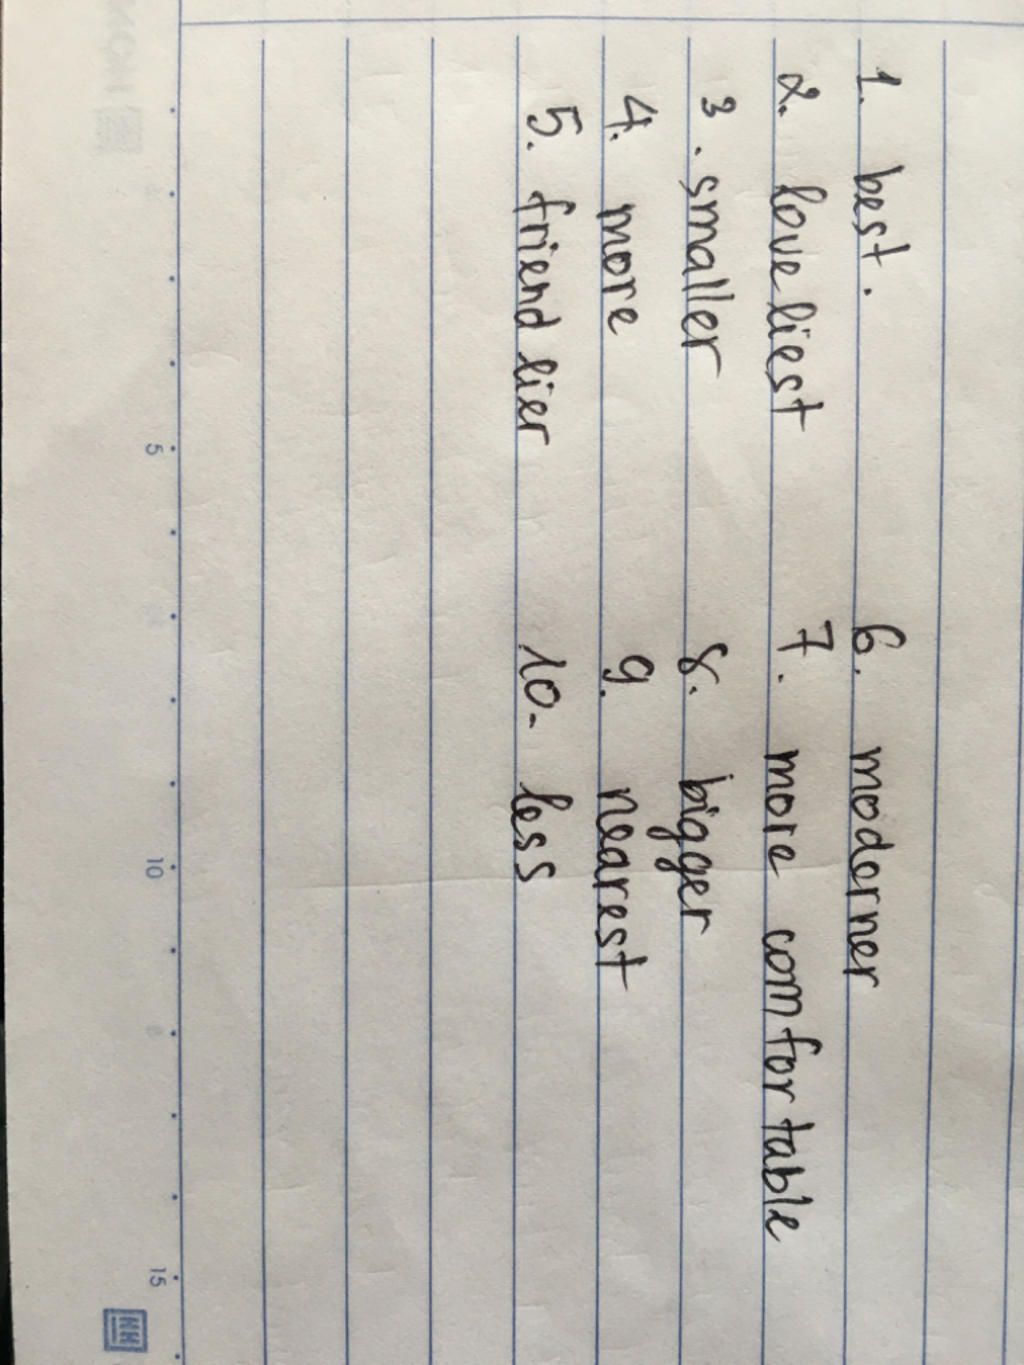 1. best.
2. loveliest
3. smaller
4. more
5. friendlier
6. moderner
7. more comfortable
8. bigger
9. nearest
10. less
5
10
15